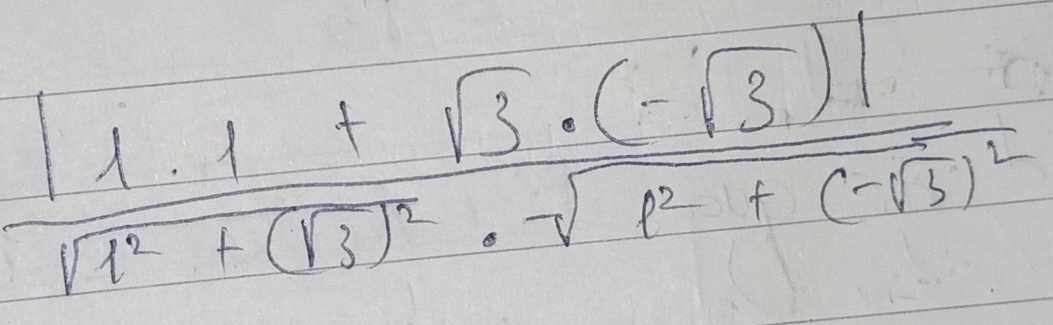 |1 . 1 + √3 · (-√3)|
√1² + (√3)² · √1² + (-√3)²